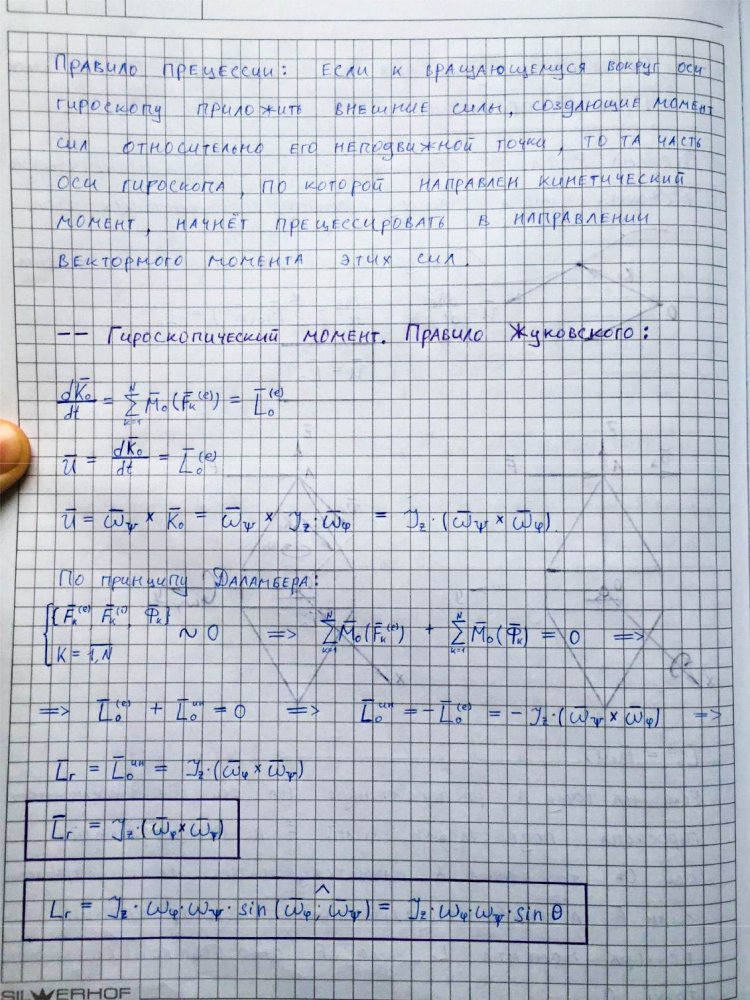 Правило прецессии: Если к вращающемуся вокруг оси
гироскопу приложить внешние силы, создающие момент
сил относительно его неподвижной точки, то та часть
оси гироскопа, по которой направлен кинетический
момент, начнёт прецессировать в направлении
векторного момента этих сил.
-- Гироскопический момент. Правило Жуковского:
dK̄₀/dt = ∑ₖ₌₁ᴺ M̄₀(F̄ₖ⁽ᵉ⁾) = L̄₀⁽ᵉ⁾
ū = dK̄₀/dt = L̄₀⁽ᵉ⁾
ū = ω̄_ψ × K̄₀ = ω̄_ψ × J_z·ω̄_φ = J_z·(ω̄_ψ × ω̄_φ)
По принципу Даламбера:
{ {F̄ₖ⁽ᵉ⁾, F̄ₖ⁽ⁱ⁾, Φ̄ₖ} ~ 0 => ∑ₖ₌₁ᴺ M̄₀(F̄ₖ⁽ᵉ⁾) + ∑ₖ₌₁ᴺ M̄₀(Φ̄ₖ) = 0 =>
K = 1,N
=> L̄₀⁽ᵉ⁾ + L̄₀ᵘⁿ = 0 => L̄₀ᵘⁿ = -L̄₀⁽ᵉ⁾ = -J_z·(ω̄_ψ × ω̄_φ) =>
L̄г = L̄₀ᵘⁿ = J_z·(ω̄_φ × ω̄_ψ)
L̄г = J_z·(ω̄_φ × ω̄_ψ)
Lг = J_z·ω_φ·ω_ψ·sin(ω̄_φ;^ω̄_ψ) = J_z·ω_φ·ω_ψ·sin θ
SILWERHOF